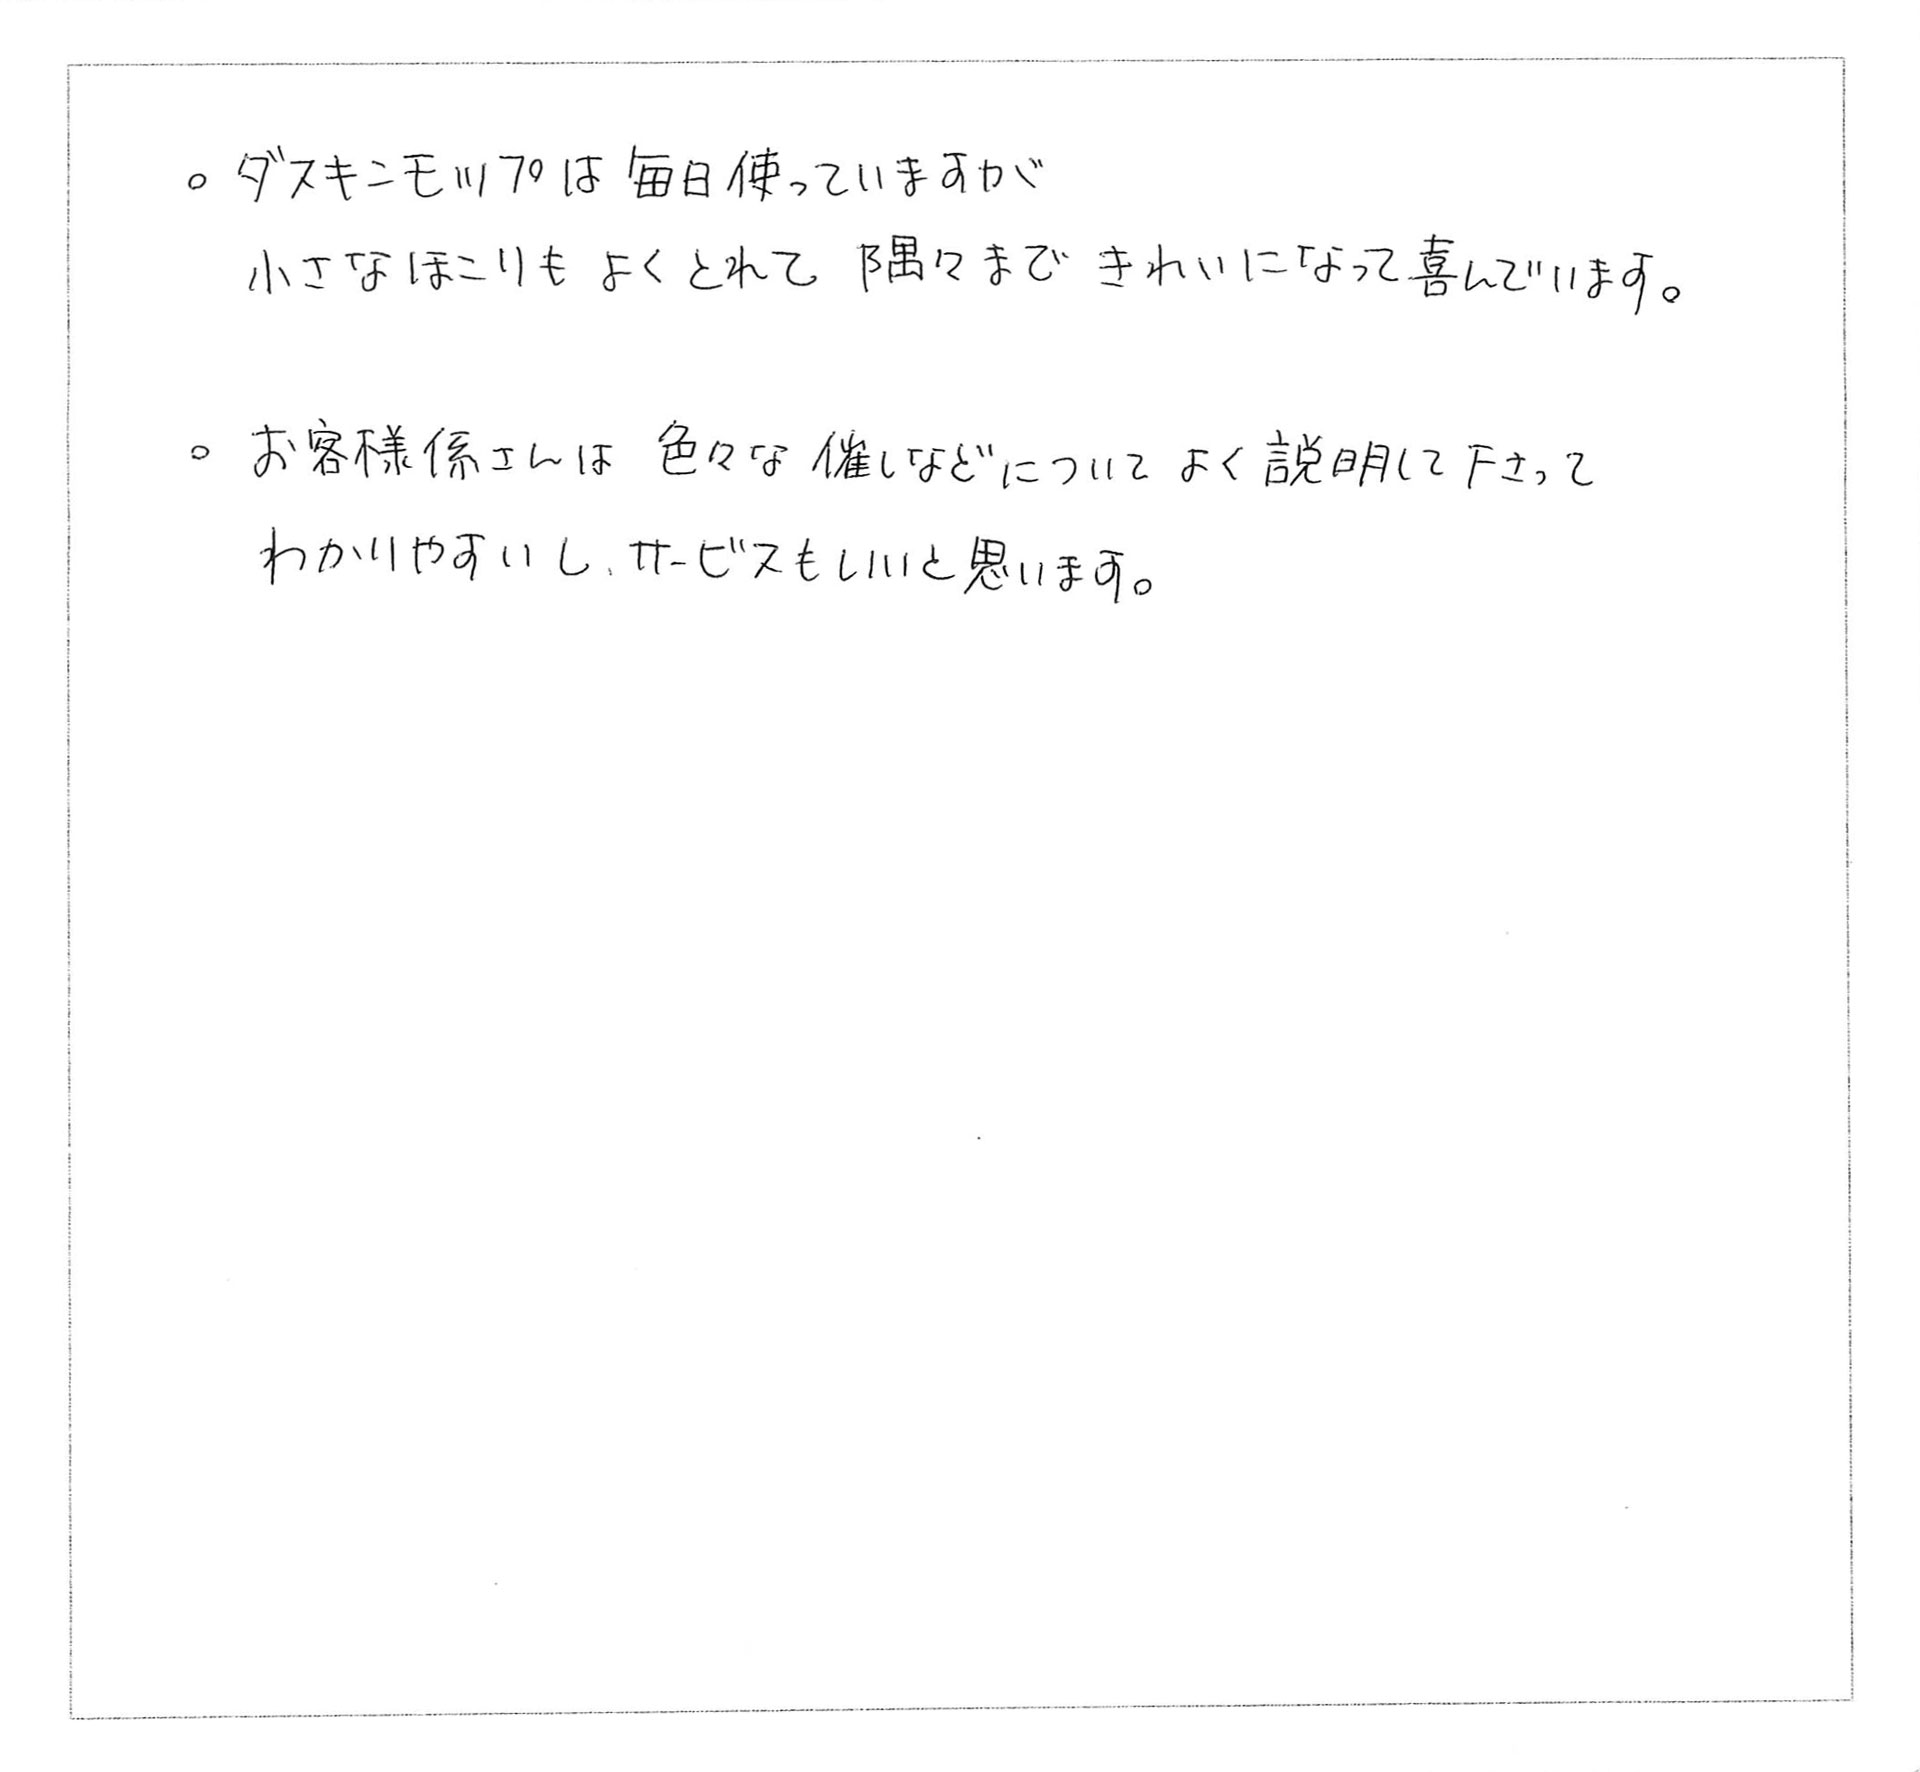 。ダスキンモップは毎日使っていますが
小さなほこりもよくとれて隅々まできれいになって喜んでいます。
。お客様係さんは色々な催しなどについてよく説明して下さって
わかりやすいし、サービスもいいと思います。